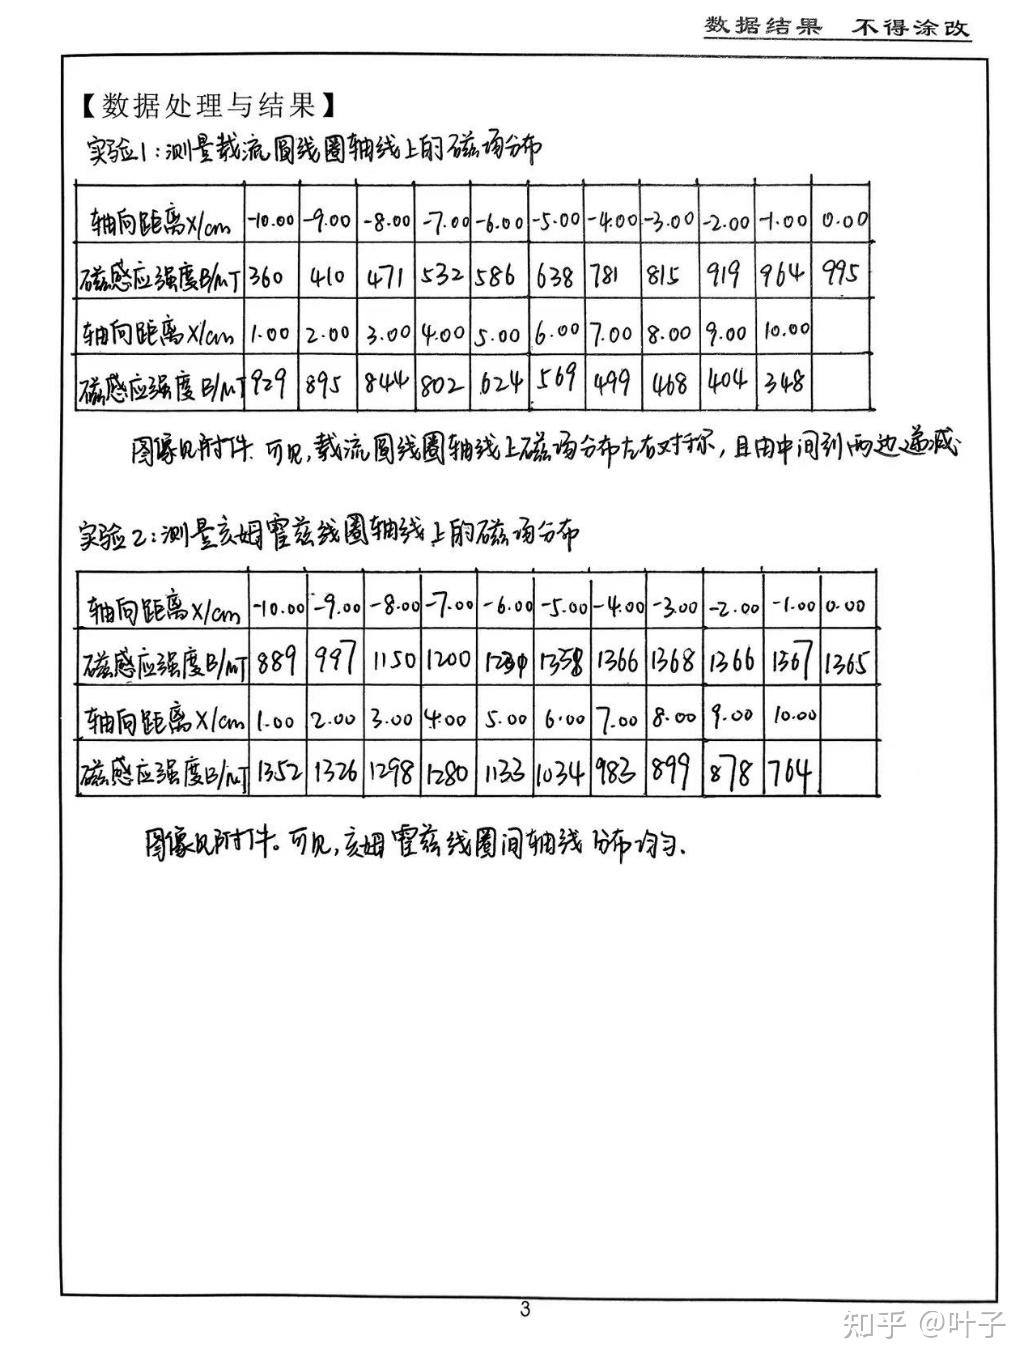 数据结果 不得涂改
【数据处理与结果】
实验1:测量载流圆线圈轴线上的磁场分布
轴向距离X/cm -10.00 -9.00 -8.00 -7.00 -6.00 -5.00 -4.00 -3.00 -2.00 -1.00 0.00
磁感应强度B/mT 360 410 471 532 586 638 781 815 919 964 995
轴向距离X/cm 1.00 2.00 3.00 4.00 5.00 6.00 7.00 8.00 9.00 10.00
磁感应强度B/mT 929 895 844 802 624 569 499 468 404 348
图像见附件.可见,载流圆线圈轴线上磁场分布左右对称,且由中间到两边递减.
实验2:测量亥姆霍兹线圈轴线上的磁场分布
轴向距离X/cm -10.00 -9.00 -8.00 -7.00 -6.00 -5.00 -4.00 -3.00 -2.00 -1.00 0.00
磁感应强度B/mT 889 997 1150 1200 1358 1366 1368 1366 1367 1365
轴向距离X/cm 1.00 2.00 3.00 4.00 5.00 6.00 7.00 8.00 9.00 10.00
磁感应强度B/mT 1352 1326 1298 1280 1133 1034 983 899 878 764
图像见附件。可见,亥姆霍兹线圈间轴线分布均匀.
3
知乎 @叶子